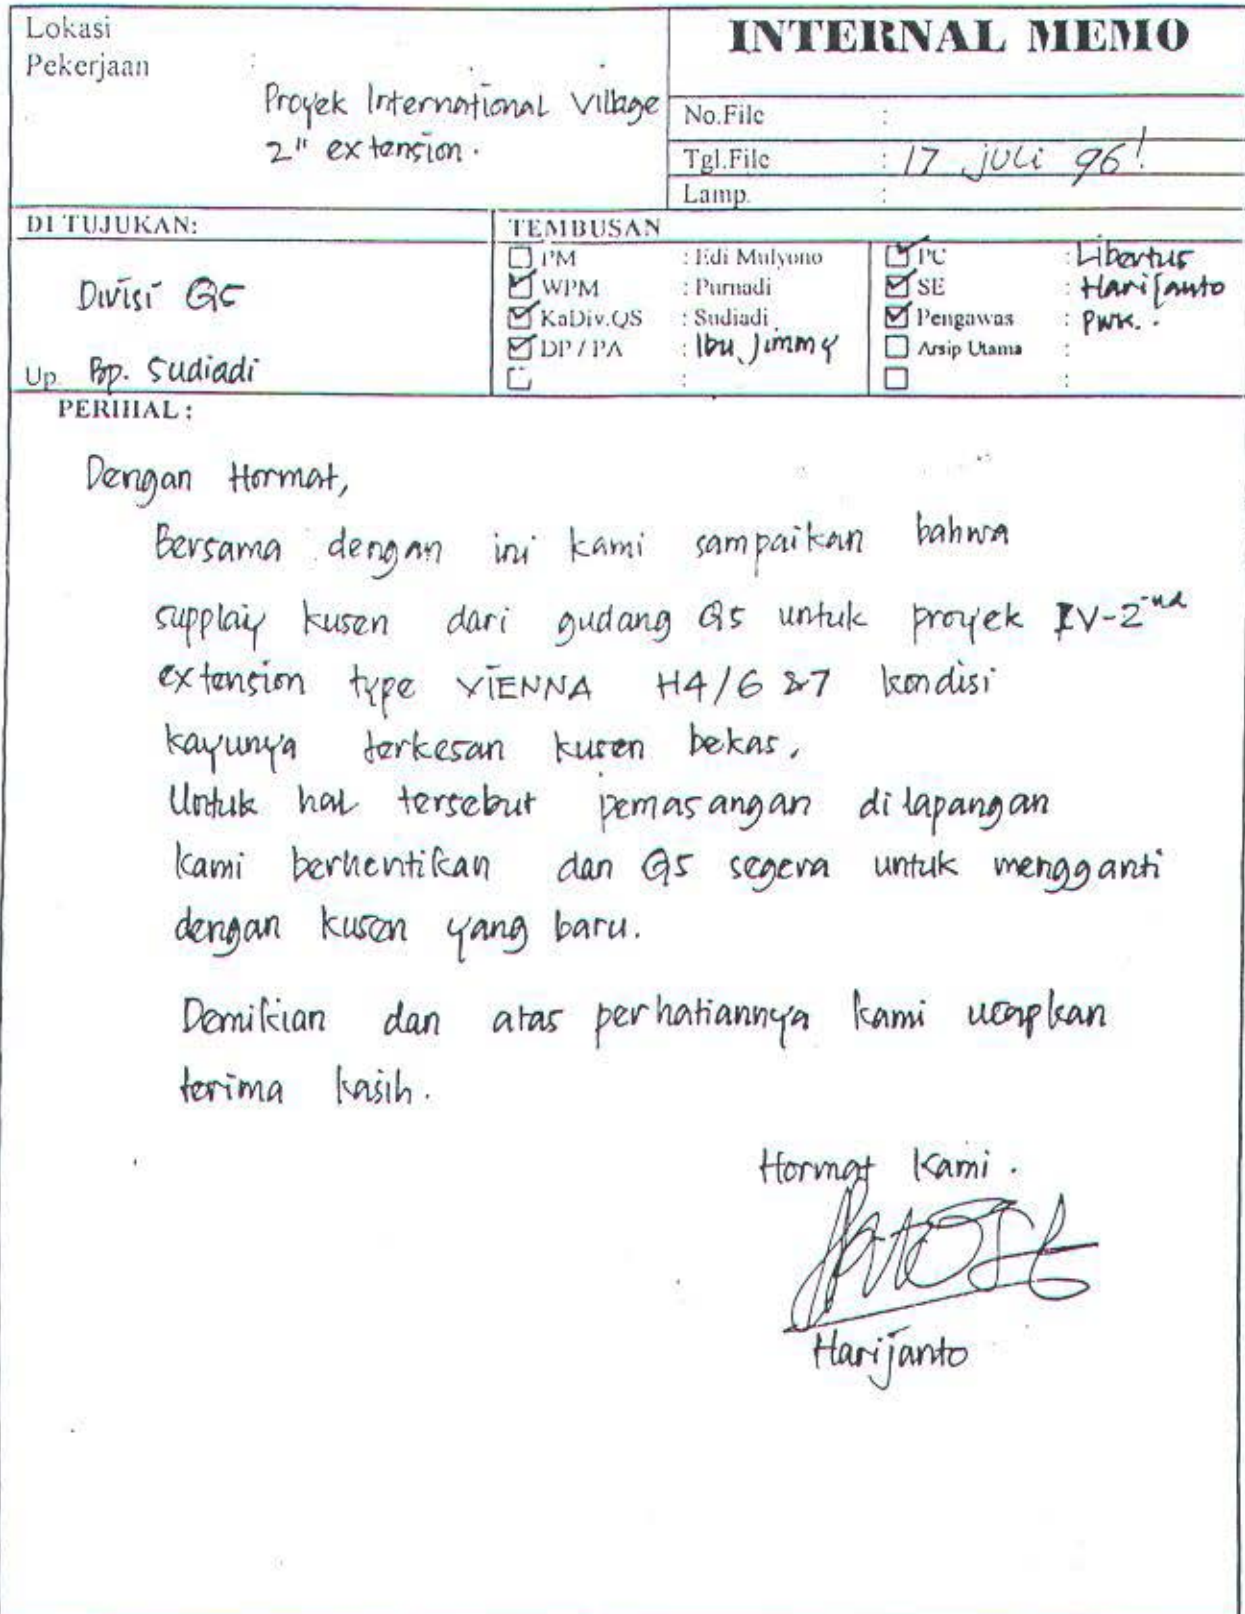 Lokasi
Pekerjaan :
Proyek International Village
2" extension.
INTERNAL MEMO
No.File :
Tgl.File : 17 juli 96!
Lamp. :
DI TUJUKAN:
Divisi QS
Up. Bp. Sudiadi
TEMBUSAN
PM : Edi Mulyono
WPM : Purnadi
KaDiv.QS : Sudiadi
DP / PA : Ibu Jimmy
:
PC : Libertus
SE : Harijanto
Pengawas : PWK.
Arsip Utama :
:
PERIHAL :
Dengan Hormat,
Bersama dengan ini kami sampaikan bahwa
supplaiy kusen dari gudang QS untuk proyek IV-2nd
extension type VIENNA H4/6 &7 kondisi
kayunya terkesan kusen bekas.
Untuk hal tersebut pemasangan di lapangan
kami berhentikan dan QS segera untuk mengganti
dengan kusen yang baru.
Demikian dan atas perhatiannya kami ucapkan
terima kasih.
Hormat Kami.
Harijanto